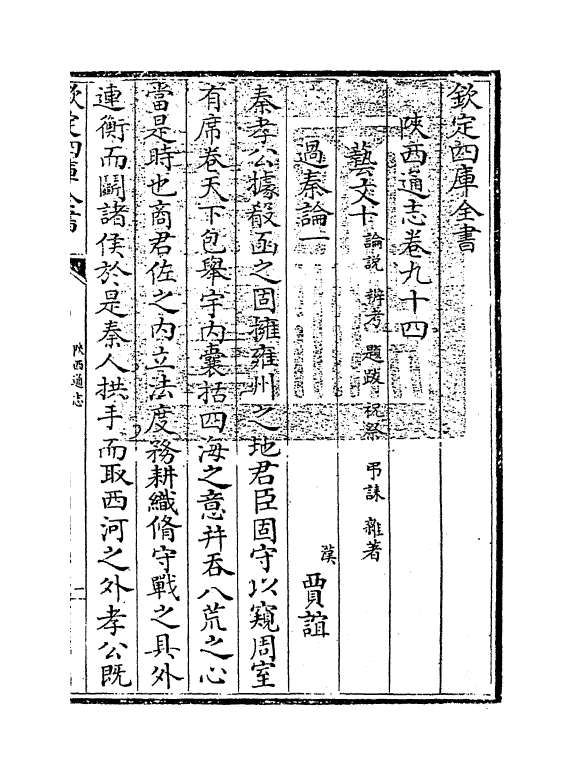 欽定四庫全書
陝西通志卷九十四
藝文十 論說 辨考 題跋 祝祭 弔誄 雜著
過秦論一 漢 賈誼
秦孝公據殽函之固擁雍州之地君臣固守以窺周室
有席卷天下包舉宇内囊括四海之意并吞八荒之心
當是時也商君佐之内立法度務耕織脩守戰之具外
連衡而鬬諸侯於是秦人拱手而取西河之外孝公既
欽定四庫全書
陜西通志
一